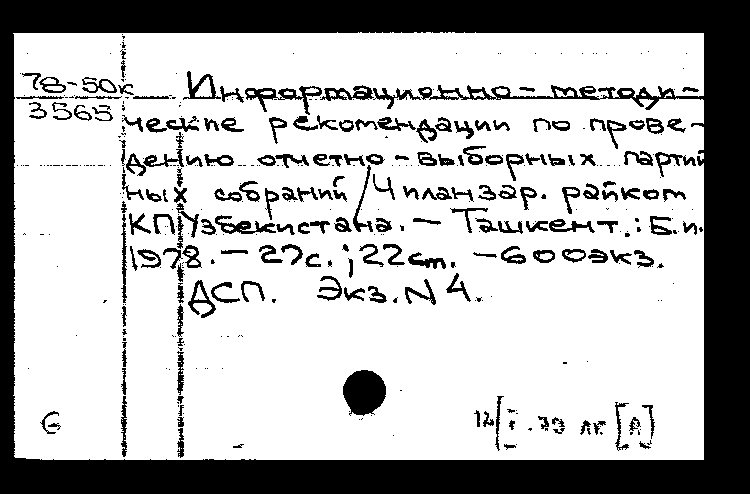 78-50к Информационно-методи-
3565 ческие рекомендации по прове-
дению отчетно-выборных партий
ных собраний / Чиланзар. райком
КП Узбекистана. - Ташкент.: Б.и.
1978. - 27с.; 22см. - 600экз.
ДСП. Экз. N 4.
6 12/ . 79 лк [А]